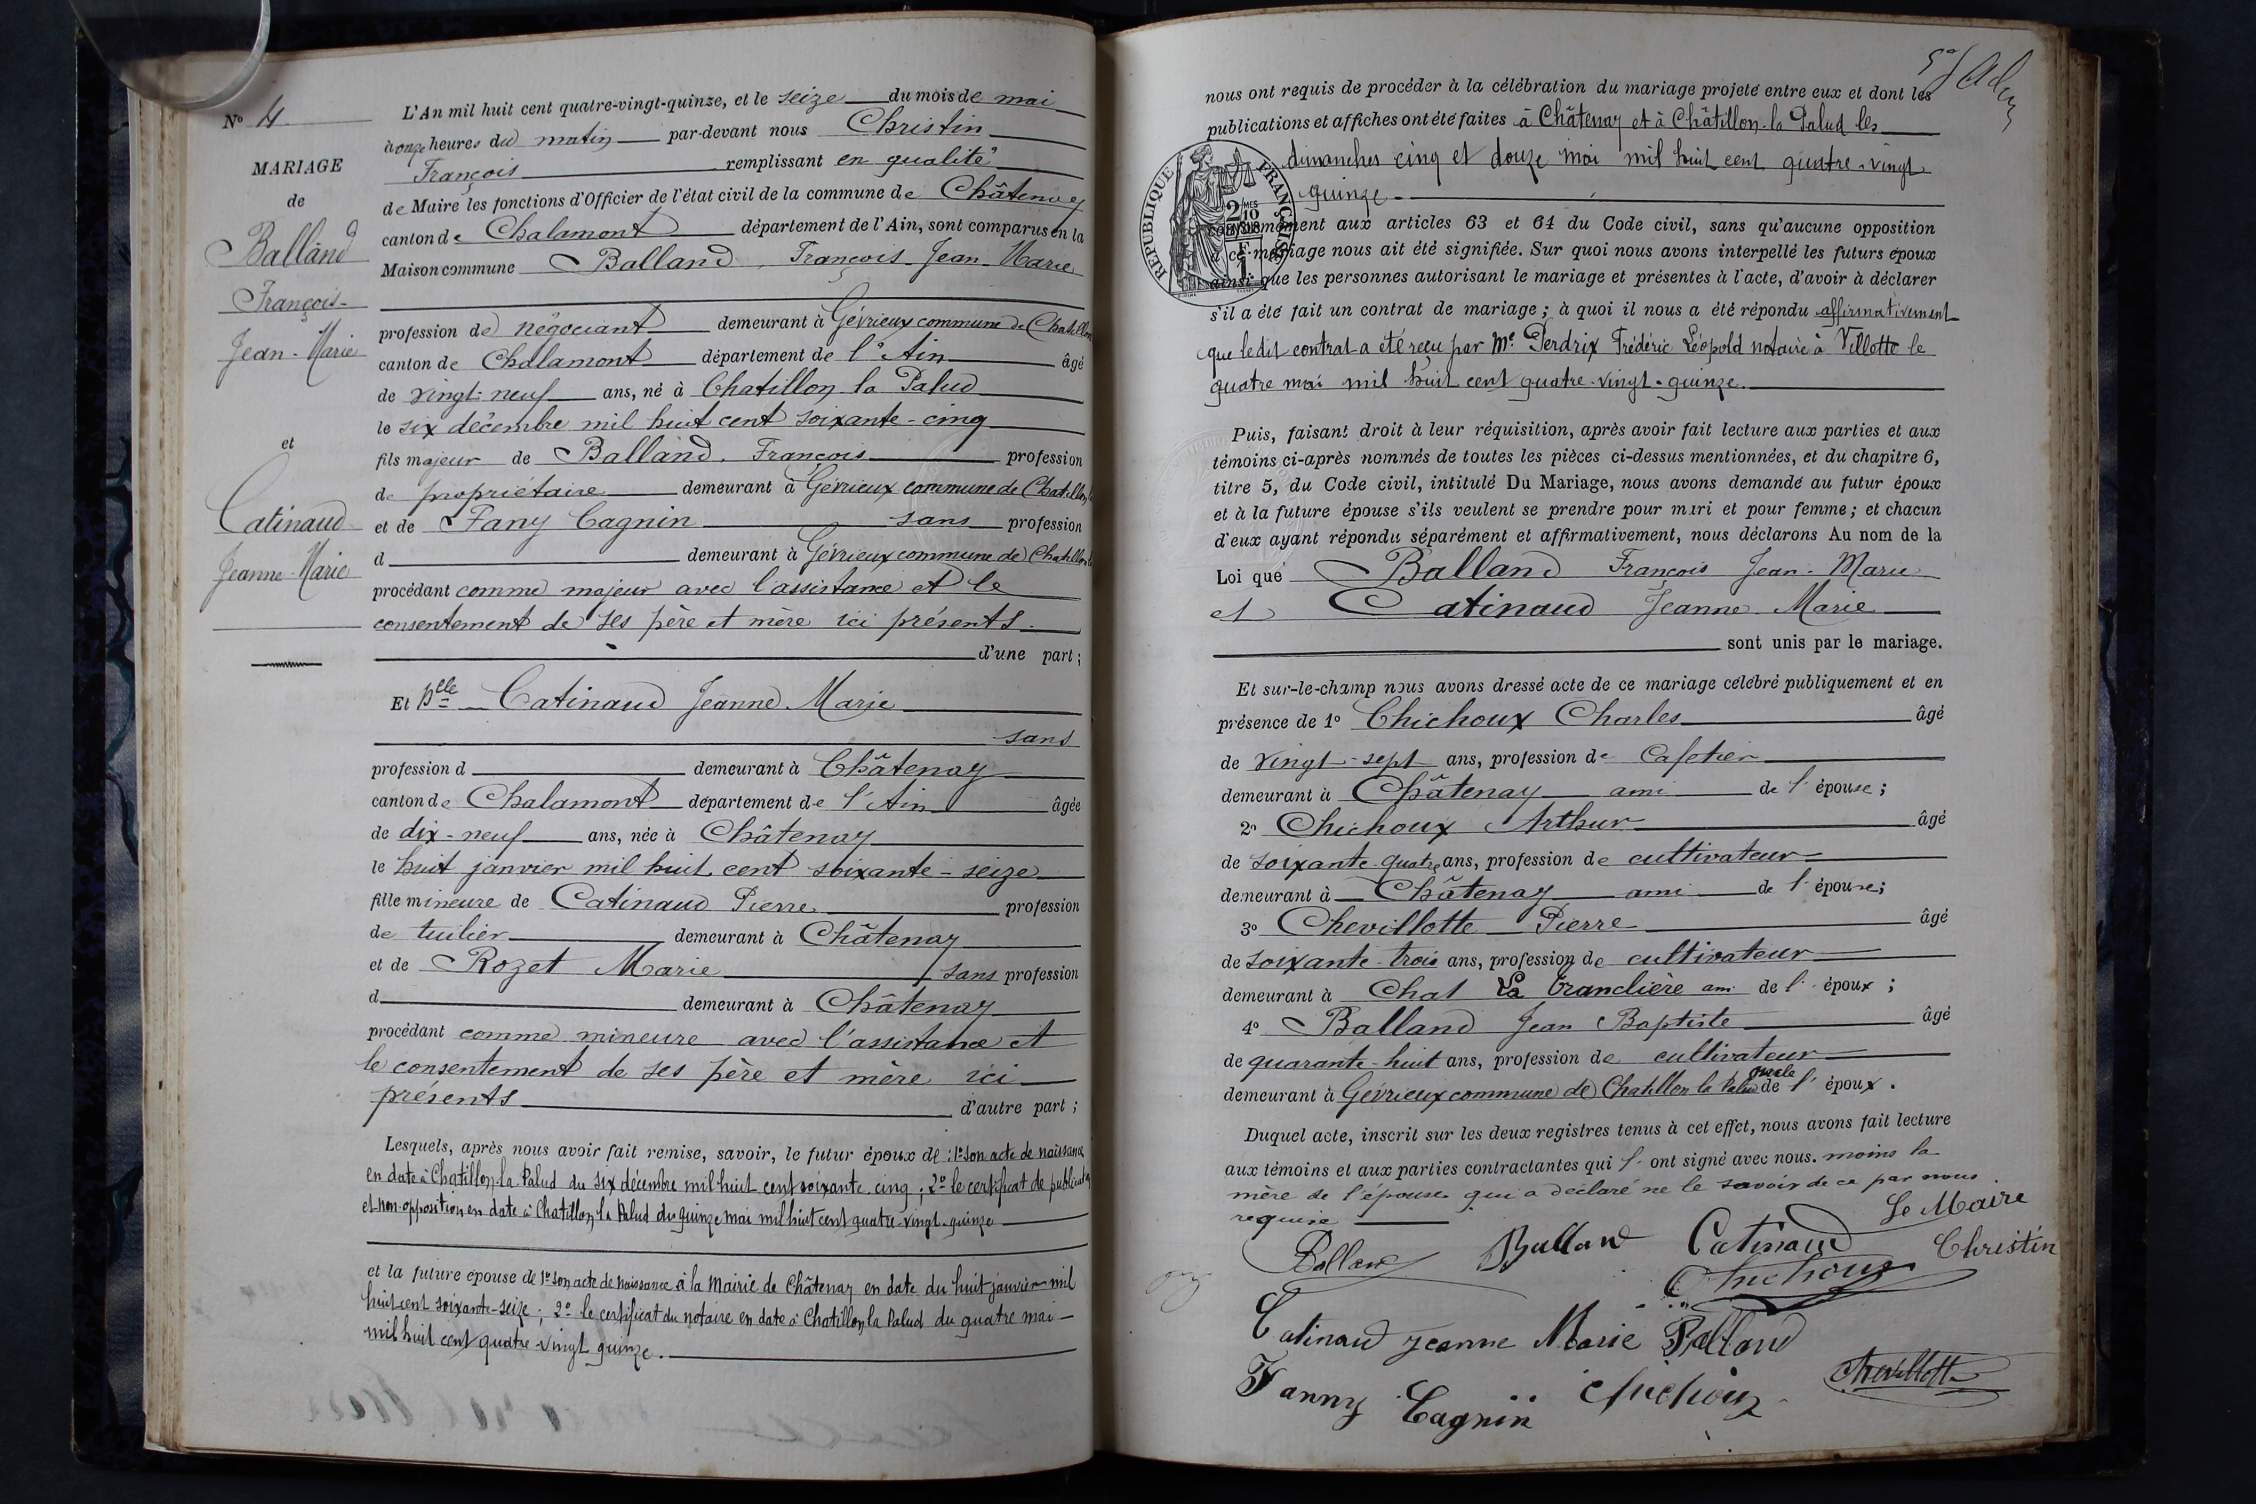 Nº 4
MARIAGE
de
Balland
François-
Jean-Marie
et
Catinaud
Jeanne-Marie
L'An mil huit cent quatre-vingt-quinze, et le seize du mois de mai
à onze heures du matin par-devant nous Christin
François remplissant en qualité
de Maire les fonctions d'Officier de l'état civil de la commune de Châtenay
canton de Chalamont département de l'Ain, sont comparus en la
Maison commune Balland, François-Jean-Marie
profession de négociant demeurant à Gévrieux commune de Chatillon
canton de Chalamont département de l'Ain âgé
de vingt-neuf ans, né à Chatillon la Palud
le six décembre mil huit cent soixante-cinq
fils majeur de Balland. François profession
de propriétaire demeurant à Gévrieux commune de Chatillon
et de Fany Cagnin sans profession
d demeurant à Gévrieux commune de Chatillon
procédant comme majeur avec l'assistance et le
consentement de ses père et mère ici présents.
d'une part;
Et Dlle Catinaud Jeanne Marie
sans
profession d demeurant à Châtenay
canton de Chalamont département de l'Ain âgée
de dix-neuf ans, née à Châtenay
le huit janvier mil huit cent soixante-seize
fille mineure de Catinaud Pierre profession
de tuilier demeurant à Châtenay
et de Rozet Marie sans profession
d demeurant à Châtenay
procédant comme mineure avec l'assistance et
le consentement de ses père et mère ici
présents d'autre part;
Lesquels, après nous avoir fait remise, savoir, le futur époux de : 1º son acte de naissance
en date à Chatillon-la-Palud du six décembre mil huit cent soixante-cinq; 2º le certificat de publication
et non-opposition en date à Chatillon la Palud du quinze mai mil huit cent quatre-vingt-quinze
et la future épouse de 1º son acte de naissance à la Mairie de Châtenay en date du huit janvier mil
huit cent soixante-seize; 2º le certificat du notaire en date à Chatillon la Palud du quatre mai
mil huit cent quatre-vingt quinze.
nous ont requis de procéder à la célébration du mariage projeté entre eux et dont les
publications et affiches ont été faites à Châtenay et à Châtillon-la Palud les
dimanches cinq et douze mai mil huit cent quatre-vingt
quinze
RÉPUBLIQUE FRANÇAISE
2 MES
10
EN SUS
conformément aux articles 63 et 64 du Code civil, sans qu'aucune opposition
à ce mariage nous ait été signifiée. Sur quoi nous avons interpellé les futurs époux
ainsi que les personnes autorisant le mariage et présentes à l'acte, d'avoir à déclarer
s'il a été fait un contrat de mariage; à quoi il nous a été répondu affirmativement
que ledit contrat a été reçu par Me Perdrix Frédéric Léopold notaire à Villette le
quatre mai mil huit cent quatre-vingt-quinze.
Puis, faisant droit à leur réquisition, après avoir fait lecture aux parties et aux
témoins ci-après nommés de toutes les pièces ci-dessus mentionnées, et du chapitre 6,
titre 5, du Code civil, intitulé Du Mariage, nous avons demandé au futur époux
et à la future épouse s'ils veulent se prendre pour mari et pour femme; et chacun
d'eux ayant répondu séparément et affirmativement, nous déclarons Au nom de la
Loi que Balland François Jean-Marie
et Catinaud Jeanne Marie
sont unis par le mariage.
Et sur-le-champ nous avons dressé acte de ce mariage célébré publiquement et en
présence de 1º Chichoux Charles âgé
de vingt-sept ans, profession de Cafetier
demeurant à Châtenay ami de l'épouse;
2º Chichoux Arthur âgé
de soixante-quatre ans, profession de cultivateur
demeurant à Châtenay ami de l'épouse;
3º Chevillotte Pierre âgé
de soixante-trois ans, profession de cultivateur
demeurant à Chat La Tranclière ami de l'époux;
4º Balland Jean Baptiste âgé
de quarante-huit ans, profession de cultivateur
demeurant à Gévrieux commune de Chatillon la Palud oncle de l'époux.
Duquel acte, inscrit sur les deux registres tenus à cet effet, nous avons fait lecture
aux témoins et aux parties contractantes qui l'ont signé avec nous. moins la
mère de l'épouse qui a déclaré ne le savoir de ce par nous
requise
Le Maire
Balland Balland Catinaud Christin
Chichoux
Catinaud Jeanne Marie Balland
Fanny Cagnin Chichoux Chevillotte